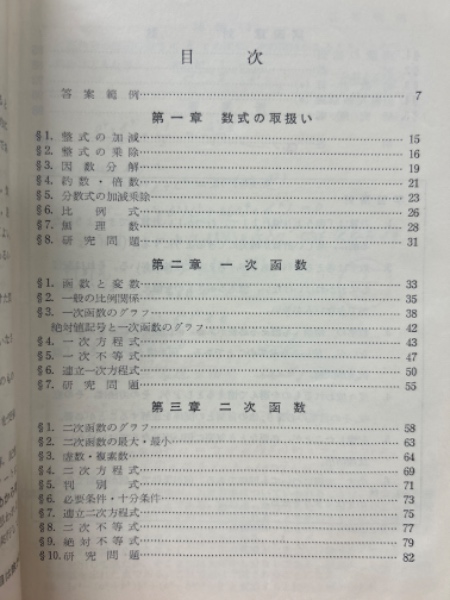 目 次
答案範例 7
第一章 数式の取扱い
§1. 整式の加減 15
§2. 整式の乗除 16
§3. 因数分解 19
§4. 約数・倍数 21
§5. 分数式の加減乗除 23
§6. 比例式 26
§7. 無理数 28
§8. 研究問題 31
第二章 一次函数
§1. 函数と変数 33
§2. 一般の比例関係 35
§3. 一次函数のグラフ 38
絶対値記号と一次函数のグラフ 42
§4. 一次方程式 43
§5. 一次不等式 47
§6. 連立一次方程式 50
§7. 研究問題 55
第三章 二次函数
§1. 二次函数のグラフ 58
§2. 二次函数の最大・最小 63
§3. 虚数・複素数 64
§4. 二次方程式 69
§5. 判別式 71
§6. 必要条件・十分条件 73
§7. 連立二次方程式 75
§8. 二次不等式 77
§9. 絶対不等式 79
§10. 研究問題 82